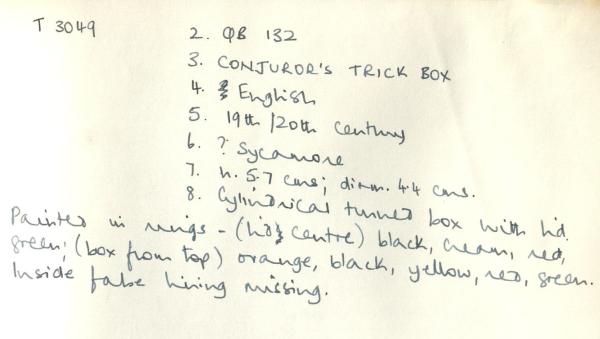 T 3049
2. QB 132
3. CONJUROR'S TRICK BOX
4. English
5. 19th/20th Century
6. ? Sycamore
7. h. 5.7 cms; diam. 4.4 cms.
8. Cylindrical turned box with lid.
Painted in rings - (lid centre) black, cream, red,
green; (box from top) orange, black, yellow, red, green.
Inside false lining missing.